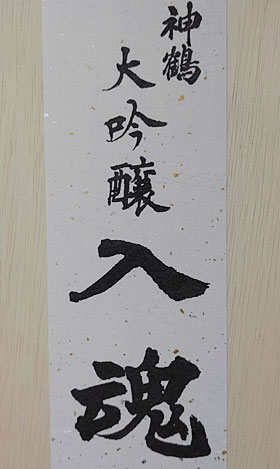 神鶴
大吟醸
入魂